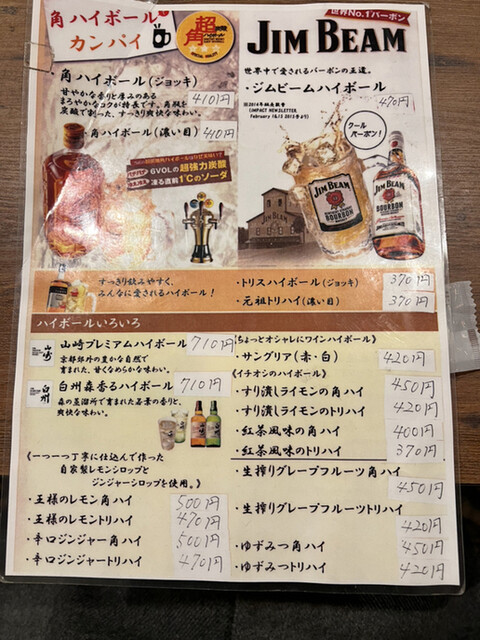 角ハイボールで
カンパイ
超
角
世界No.1バーボン
JIM BEAM
世界中で愛されるバーボンの王道。
・ジムビームハイボール
470円
COMPACT NEWSLETTER
クール
バーボン!
JIM BEAM
JIM BEAM
BOURBON
JIM BEAM
BOURBON
・角ハイボール(ジョッキ)
甘やかな香りと厚みのある
まろやかなコクが特長です。角瓶を
炭酸で割った、すっきり爽快な味わい。
410円
・角ハイボール(濃い目)
410円
GVOLの超強力炭酸
凍る直前1℃のソーダ
すっきり飲みやすく、
みんなに愛されるハイボール!
・トリスハイボール(ジョッキ)
370円
・元祖トリハイ(濃い目)
370円
ハイボールいろいろ
山崎
山崎プレミアムハイボール
710円
京都郊外の豊かな自然で
育まれた、甘くなめらかな味わい。
白州
白州森香るハイボール
710円
森の蒸溜所で育まれた若葉の香りと、
爽快な味わい。
《一つ一つ丁寧に仕込んで作った
自家製レモンシロップと
ジンジャーシロップを使用。》
・王様のレモン角ハイ
500円
・王様のレモントリハイ
470円
・辛口ジンジャー角ハイ
500円
・辛口ジンジャートリハイ
470円
《ちょっとオシャレにワインハイボール》
・サングリア(赤・白)
420円
《イチオシのハイボール》
・すり潰しライモンの角ハイ
450円
・すり潰しライモンのトリハイ
420円
・紅茶風味の角ハイ
400円
・紅茶風味のトリハイ
370円
・生搾りグレープフルーツ角ハイ
450円
・生搾りグレープフルーツトリハイ
420円
・ゆずみつ角ハイ
450円
・ゆずみつトリハイ
420円